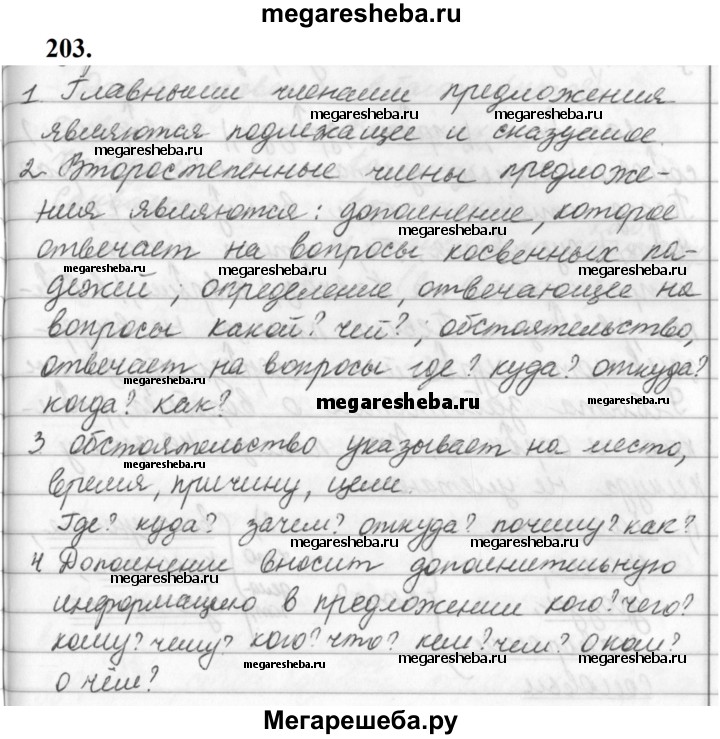 megaresheba.ru
203.
1. Главными членами предложения
megaresheba.ru megaresheba.ru
являются подлежащее и сказуемое.
megaresheba.ru megaresheba.ru
2. Второстепенные члены предложе-
megaresheba.ru
ния являются: дополнение, которое
megaresheba.ru megaresheba.ru
отвечает на вопросы косвенных па-
megaresheba.ru megaresheba.ru megaresheba.ru
дежей; определение, отвечающее на
вопросы какой? чей?; обстоятельство,
отвечает на вопросы где? куда? откуда?
megaresheba.ru megaresheba.ru
когда? как?
megaresheba.ru
3. обстоятельство указывает на место,
megaresheba.ru megaresheba.ru
время, причину, цели.
Где? куда? зачем? откуда? почему? как?
megaresheba.ru megaresheba.ru
4. Дополнение вносит дополнительную
megaresheba.ru megaresheba.ru
информацию в предложении кого? чего?
кому? чему? кого? что? кем? чем? О ком?
megaresheba.ru megaresheba.ru
о чём?
Мегарешеба.ру